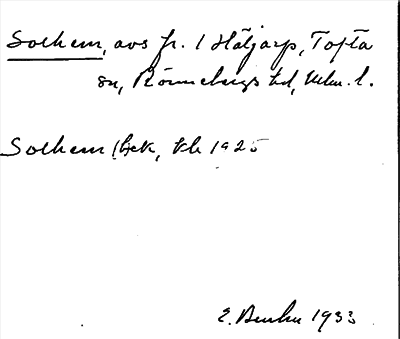 Solhem, avs fr. 1 Häljarp, Tofta
sn, Rönnebergs hd, Mlm. l.
Solhem lhet, tk 1925
E. 1933